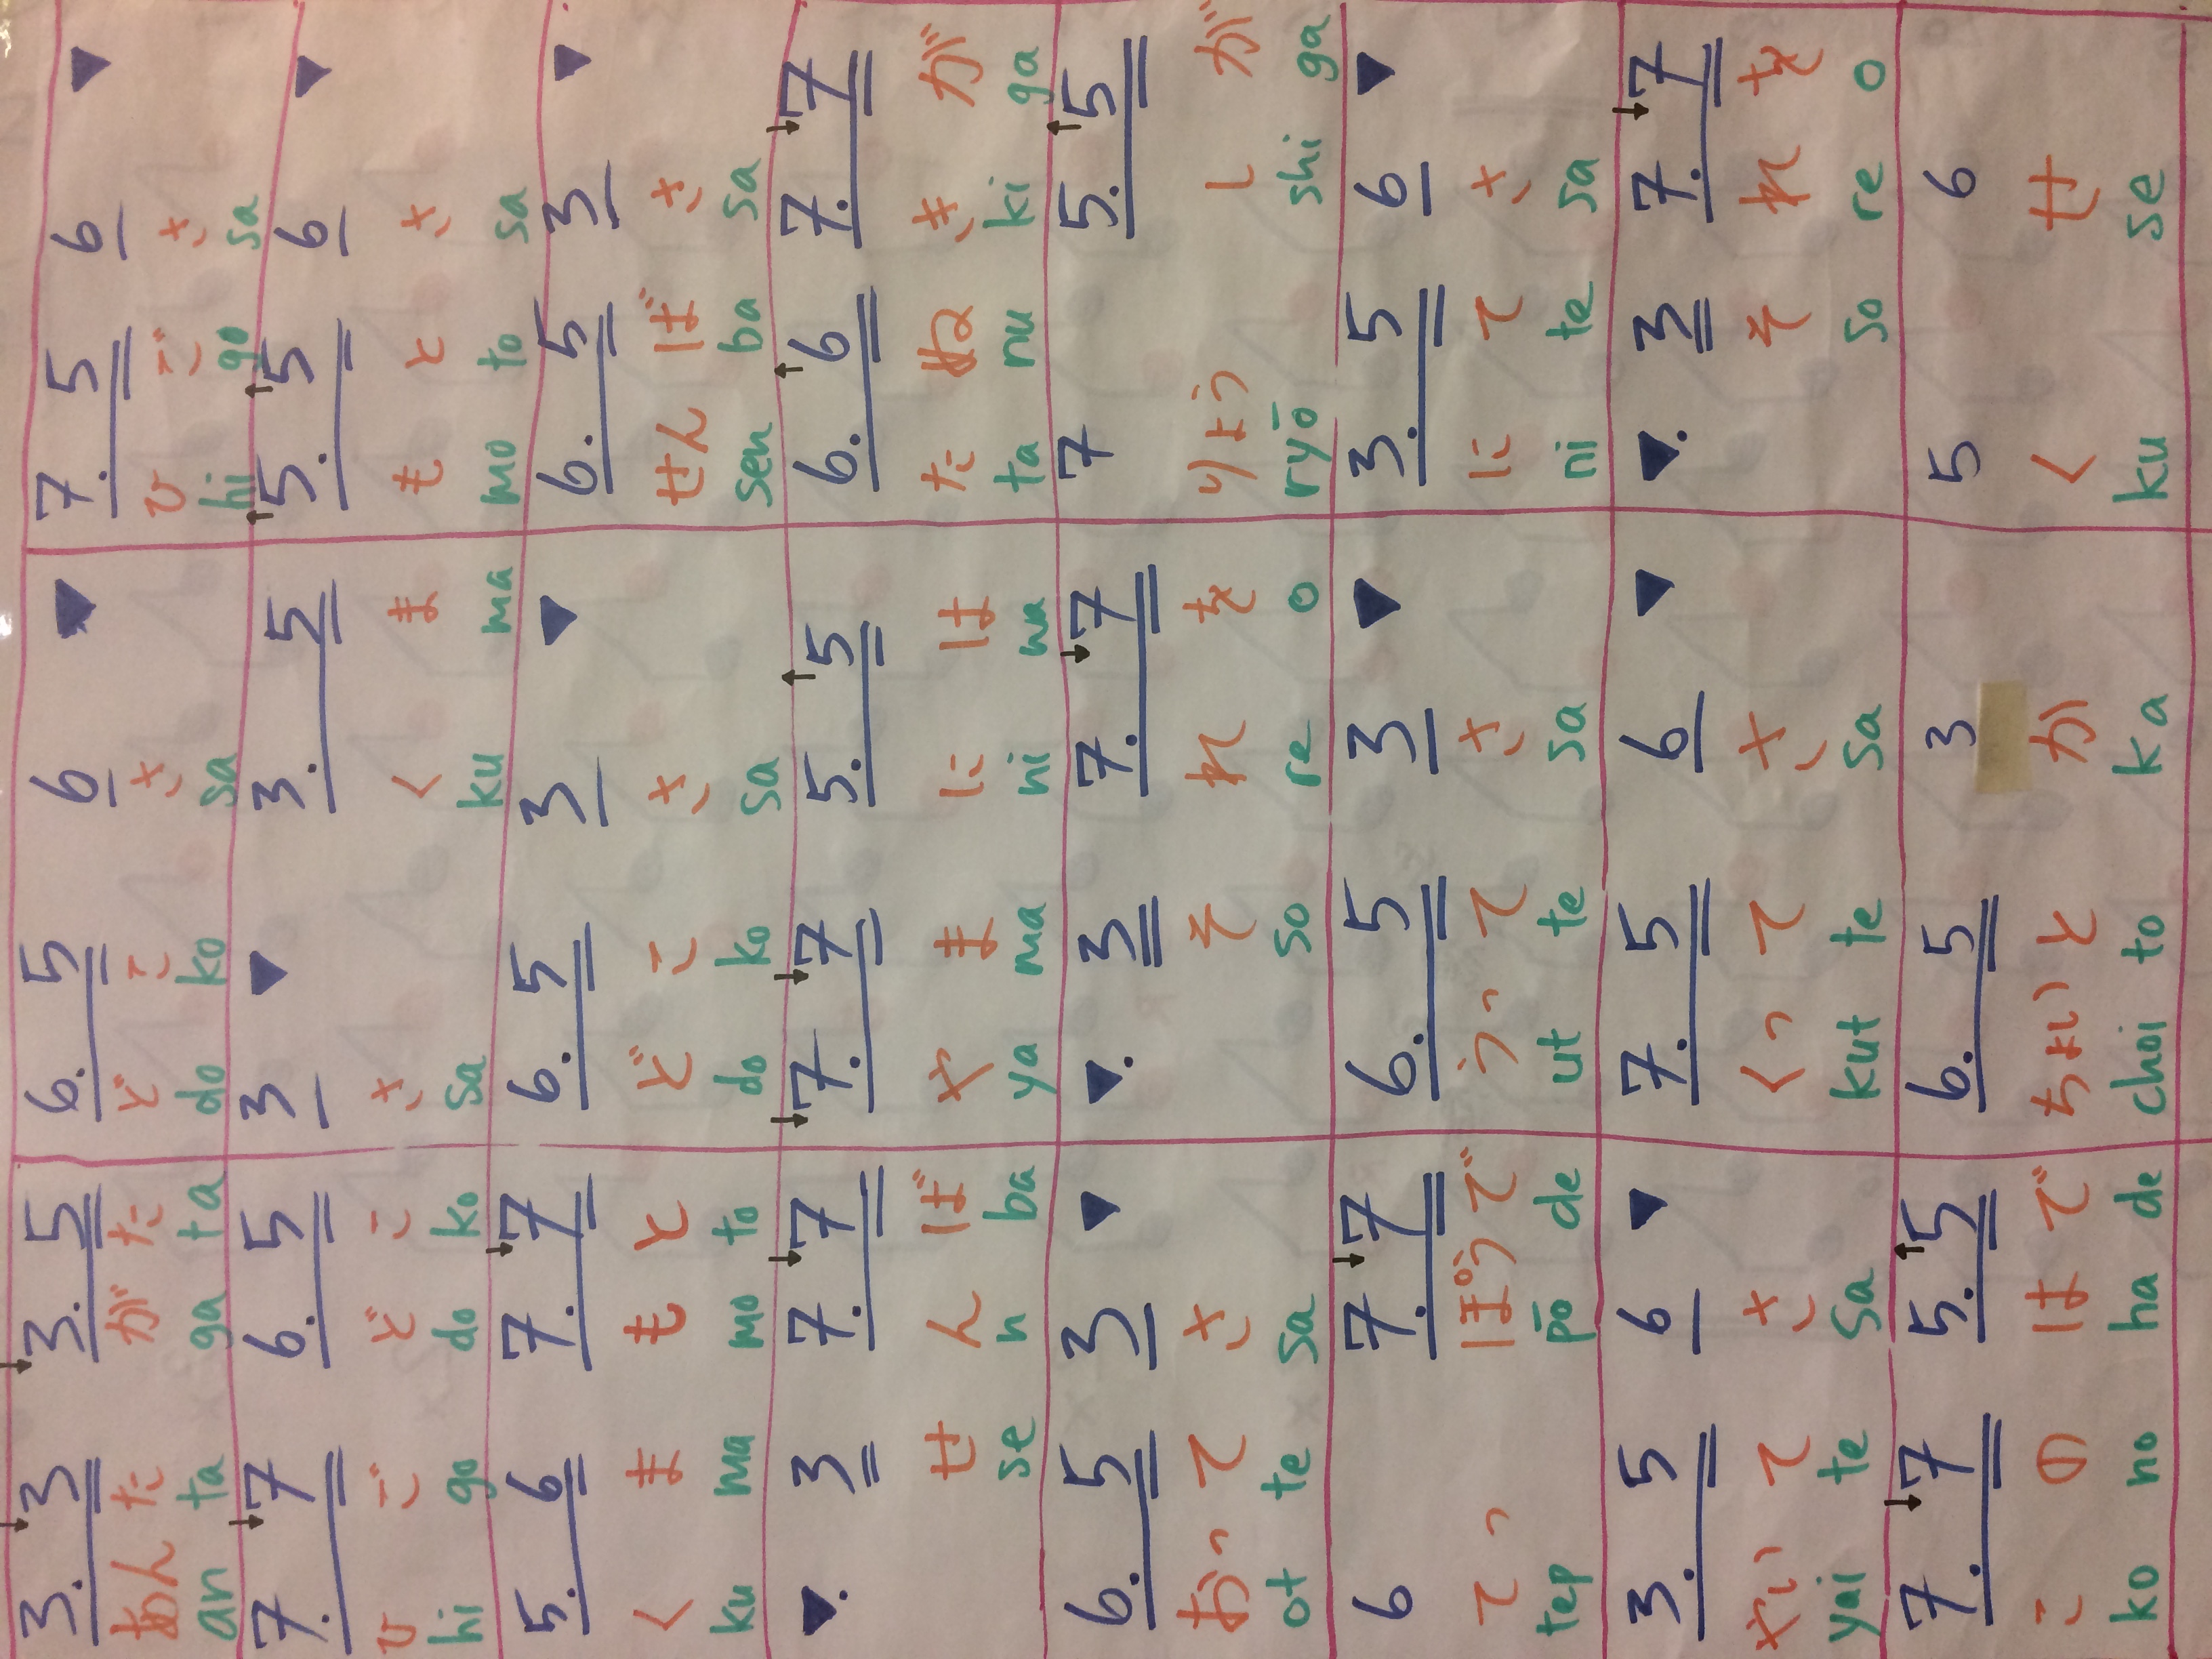 3. ↓3 ↓3. 5 6. 5 6 ◀ 7. 5 6 ◀
あん た が た ど こ さ ひ ご さ
an ta ga ta do ko sa hi go sa
7. ↓7 6. 5 3 ◀ 3. 5 ↑5. ↑5 6 ◀
ひ ご ど こ さ く ま も と さ
hi go do ko sa ku ma mo to sa
5. 6 7. ↓7 6. 5 3 ◀ 6. 5 3 ◀
く ま も と ど こ さ せん ば さ
ku ma mo to do ko sa sen ba sa
◀. 3 7. ↓7 ↓7. ↓7 5. ↑5 6. ↑6 7. ↓7
せ ん ば や ま に は た ぬ き が
se n ba ya ma ni wa ta nu ki ga
6. 5 3 ◀ ◀. 3 7. ↓7 7 5. ↑5
おっ て さ そ れ を りょう し が
ot te sa so re o ryō shi ga
6 7. ↓7 6. 5 3 ◀ 3. 5 6 ◀
てっ ぽう で うっ て さ に て さ
tep pō de ut te sa ni te sa
3. 5 6 ◀ 7. 5 6 ◀ ◀. 3 7. ↓7
やい て さ くっ て さ そ れ を
yai te sa kut te sa so re o
7. ↓7 5. ↑5 6. 5 3 5 6
こ の は で ちょい と か く せ
ko no ha de choi to ka ku se